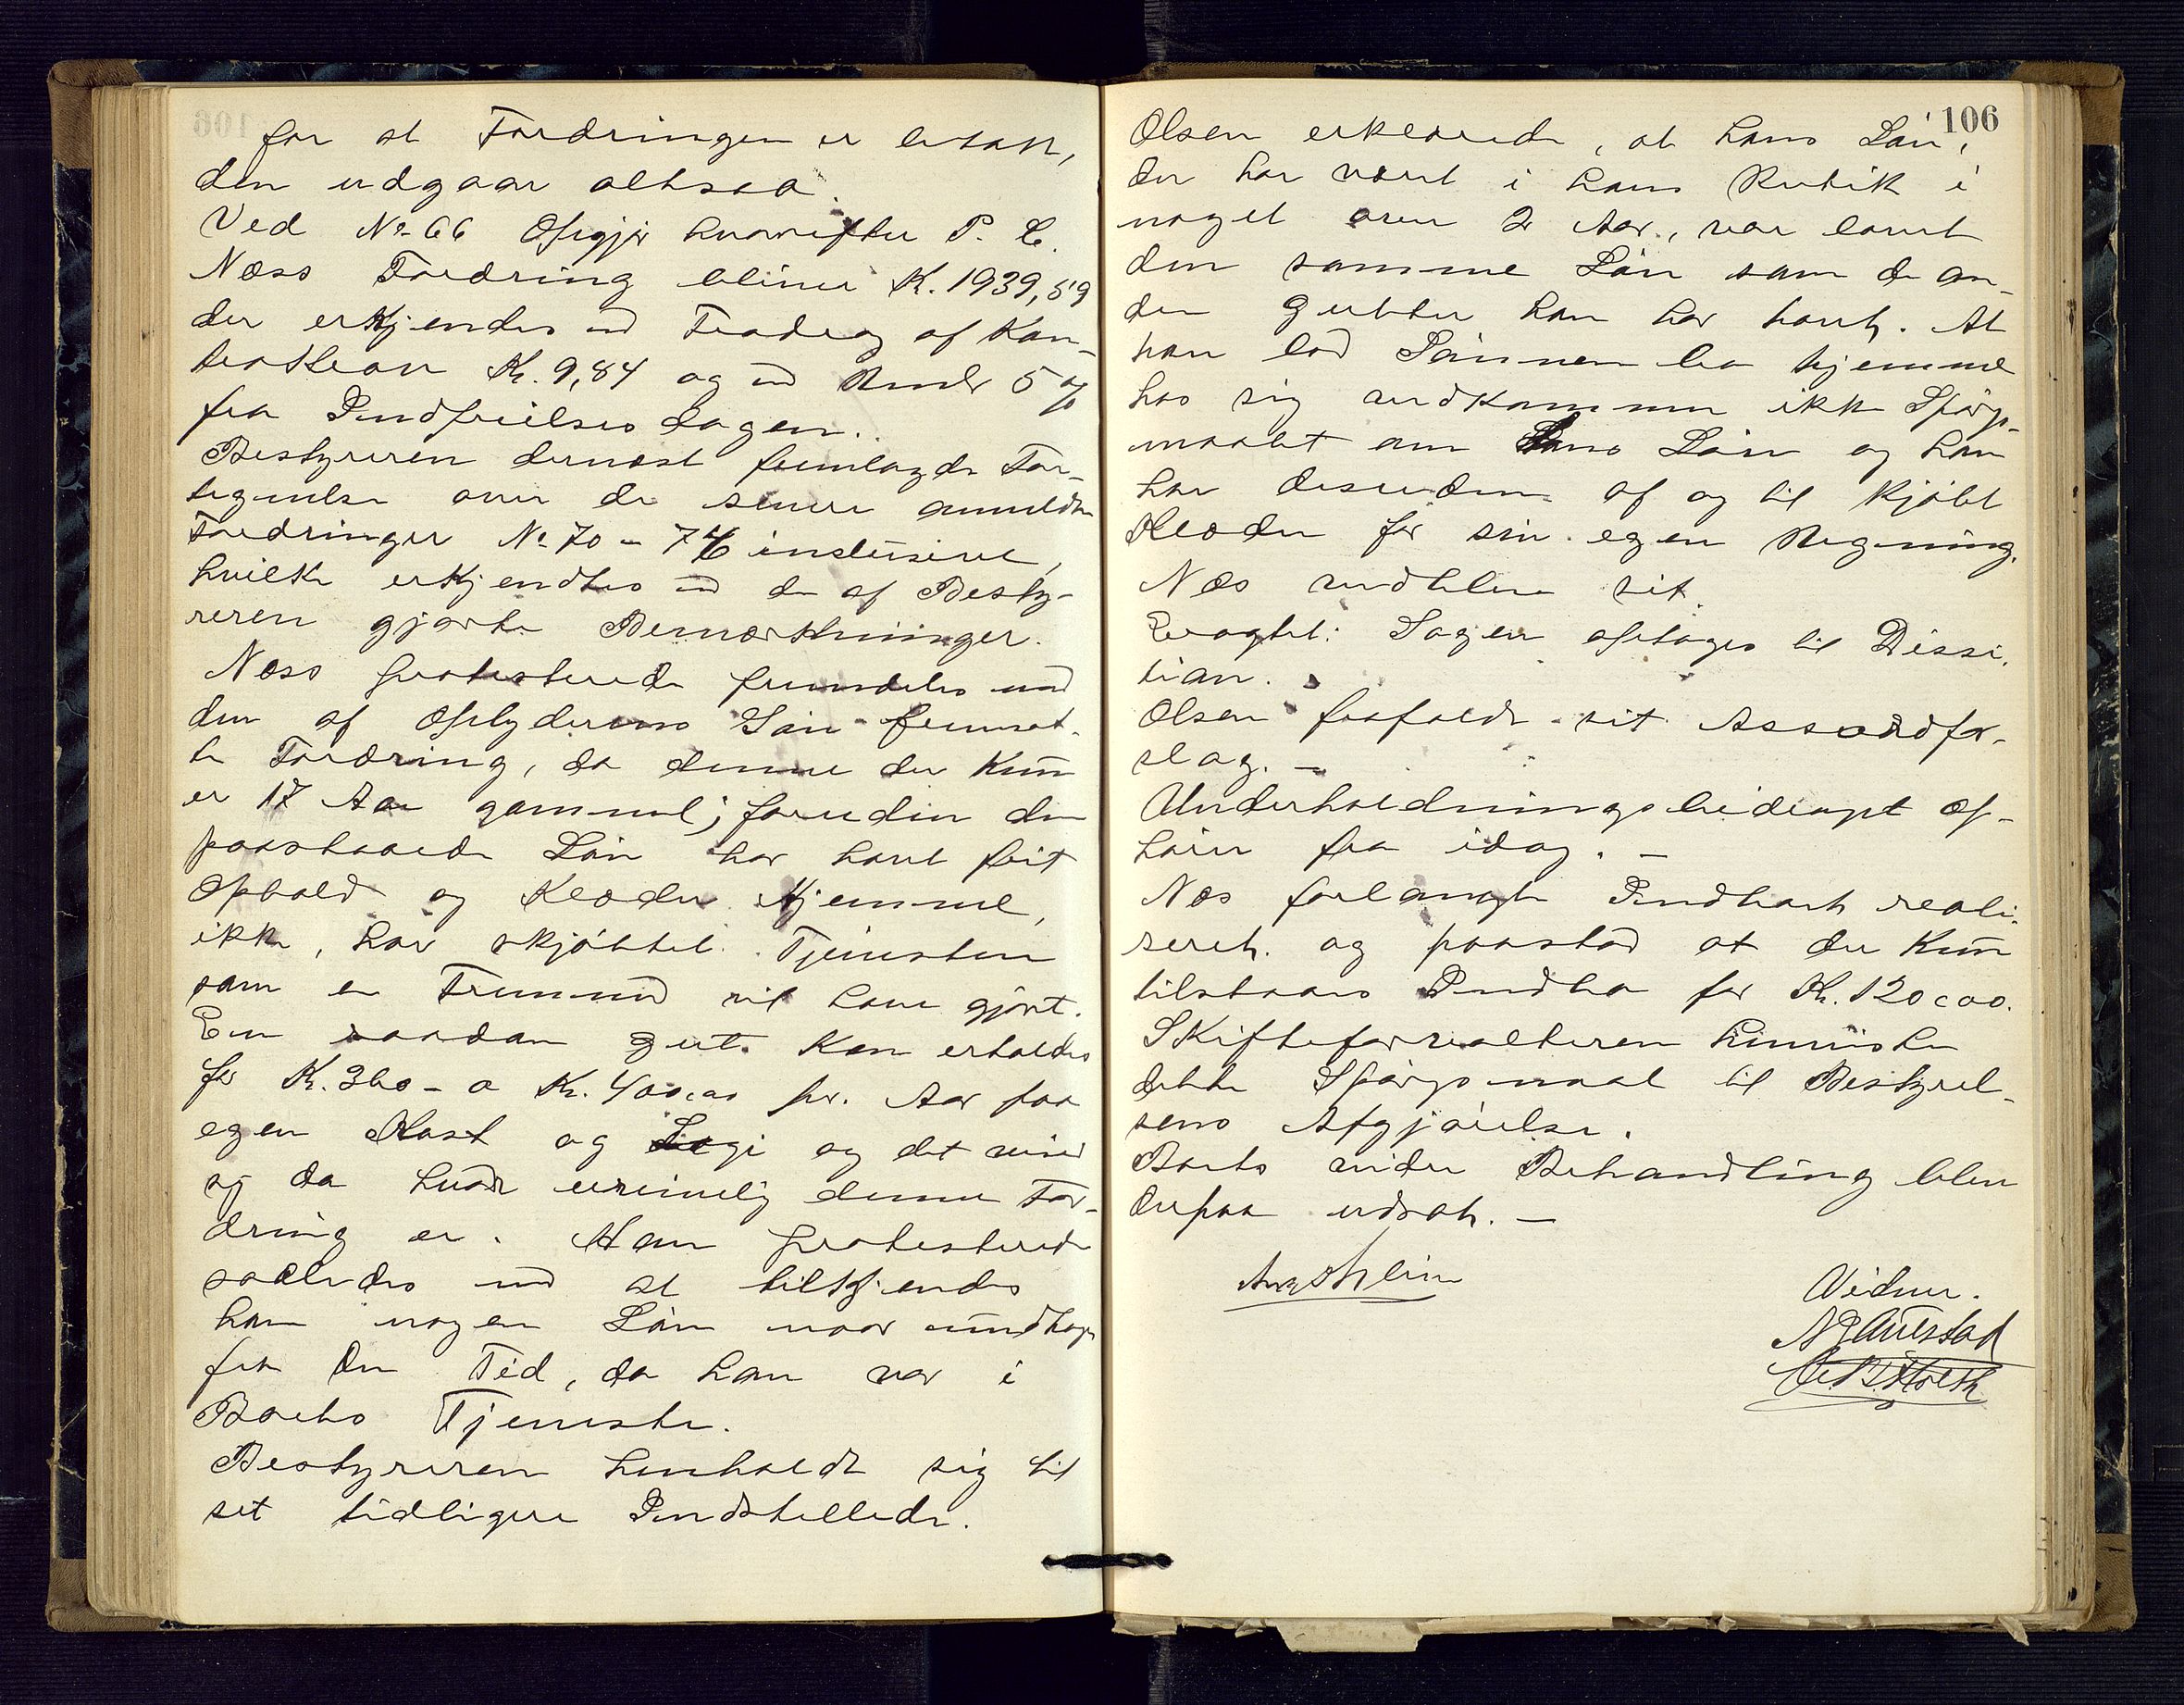 for at Fordringen er betalt,
den udgaar altsaa.
Ved No 66 Opgjør hvorefter P. C.
Næss Fordring bliver K. 1939,59
der erkjendes md Fradrag af Kon-
traktran Kr. 9,84 og md Rente 5 %
fra Indfrielses dagen.
Bestyreren dernæst fremlagde For-
tegnelse over de senere anmeldte
Fordringer No 70 - 76 inclusive,
hvilke erkjendtes md de af Besty-
reren gjorte Bemærkninger.
Næss protesterede fremdeles mod
den af Opbyderens Søn fremsat-
te Fordring, da denne der kun
er 17 Aar gammel; foruden den
paastaaede Løn har havt frit
Ophold og Klæder hjemme,
ikke, har skjøttet Tjenesten
som en Fremmed vil have gjort.
En saadan gut kan erholdes
for K. 360 - a Kr. 400,00 pr. Aar paa
egen Kost og Logi og det viser
sig da hvor urimelig denne For-
dring er. Han protesterede
saaledes md at tilkjendes
ham nogen Løn naar undtages
fra den Tid, da han var i
Boets Tjeneste.
Bestyreren henholdt sig til
sit tidligere Indstillede.
106
Olsen erklærede, at hans Søn,
der har været i hans Butik i
noget over 2 Aar, var lovet
den samme Løn som de an-
dre gutter han har havt. At
han lod Sønnen bo hjemme
hos sig vedkommer ikke Spørgs-
maalet om hans Løn og han
har desuden af og til kjøbt
Klæder for sin egen Regning.
Næs vedblev sit.
Eragtet: Sagen optages til Decisi-
tion.
Olsen frafaldt sit Accordfor-
slag. —
Underholdningsbidraget op-
hører fra idag. —
Næs forlangte Indboet reali-
seret og paastod at der kun
tilstaaes Indbo for Kr. 120,00.
Skifteforvalteren henviste
dette Spørgsmaal til Bestyrel-
sens Afgjørelse.
Boets videre Behandling blev
derpaa udsat. —
Vidner.